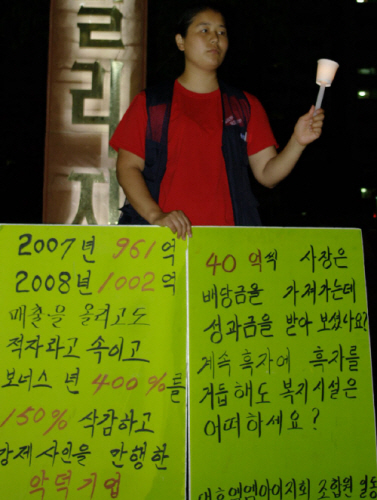 리
자
2007년 961억
2008년 1002억
매출을 올리고도
적자라고 속이고
보너스 년 400%를
150% 삭감하고
강제사인을 만행한
악덕기업
40억씩 사장은
배당금을 가져가는데
성과금을 받아 보셨나요?
계속 흑자에 흑자를
거듭해도 복지시설은
어떠하세요?
조합원 일동